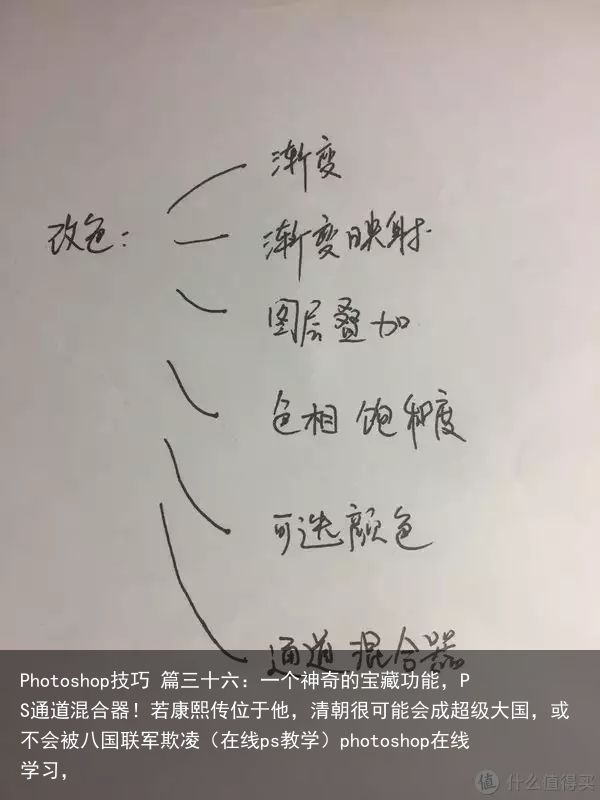 渐变
改色：
渐变映射
图层叠加
色相 饱和度
可选颜色
通道混合器
Photoshop技巧 篇三十六：一个神奇的宝藏功能，P
S通道混合器！若康熙传位于他，清朝很可能会成超级大国，或
不会被八国联军欺凌（在线ps教学）photoshop在线
学习，
值 什么值得买